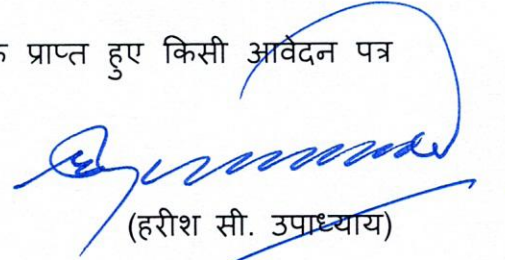 प्राप्त हुए किसी आवेदन पत्र
(हरीश सी. उपाध्याय)